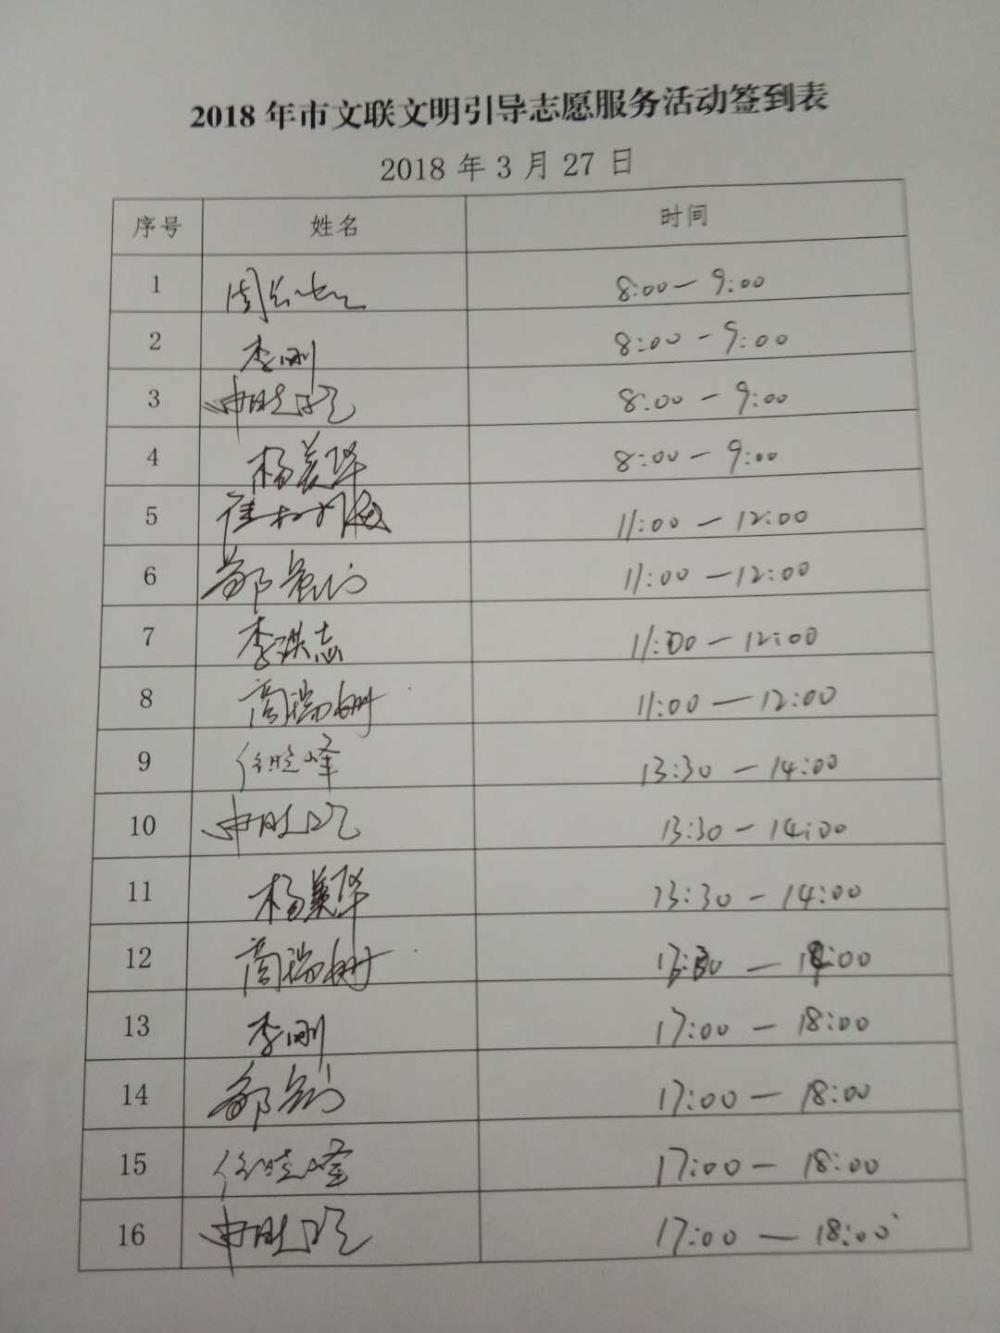 2018年市文联文明引导志愿服务活动签到表
2018 年 3 月 27 日
序号 姓名 时间
1 8:00 — 9:00
2 李刚 8:00 - 9:00
3 8:00 - 9:00
4 杨美华 8:00 - 9:00
5 11:00 - 12:00
6 11:00 - 12:00
7 李洪志 11:00 - 12:00
8 商瑞姗 11:00 — 12:00
9 任晓峰 13:30 - 14:00
10 13:30 - 14:00
11 杨美华 13:30 - 14:00
12 商瑞姗 13:30 — 14:00
13 李刚 17:00 - 18:00
14 17:00 - 18:00
15 任晓峰 17:00 - 18:00
16 17:00 — 18:00